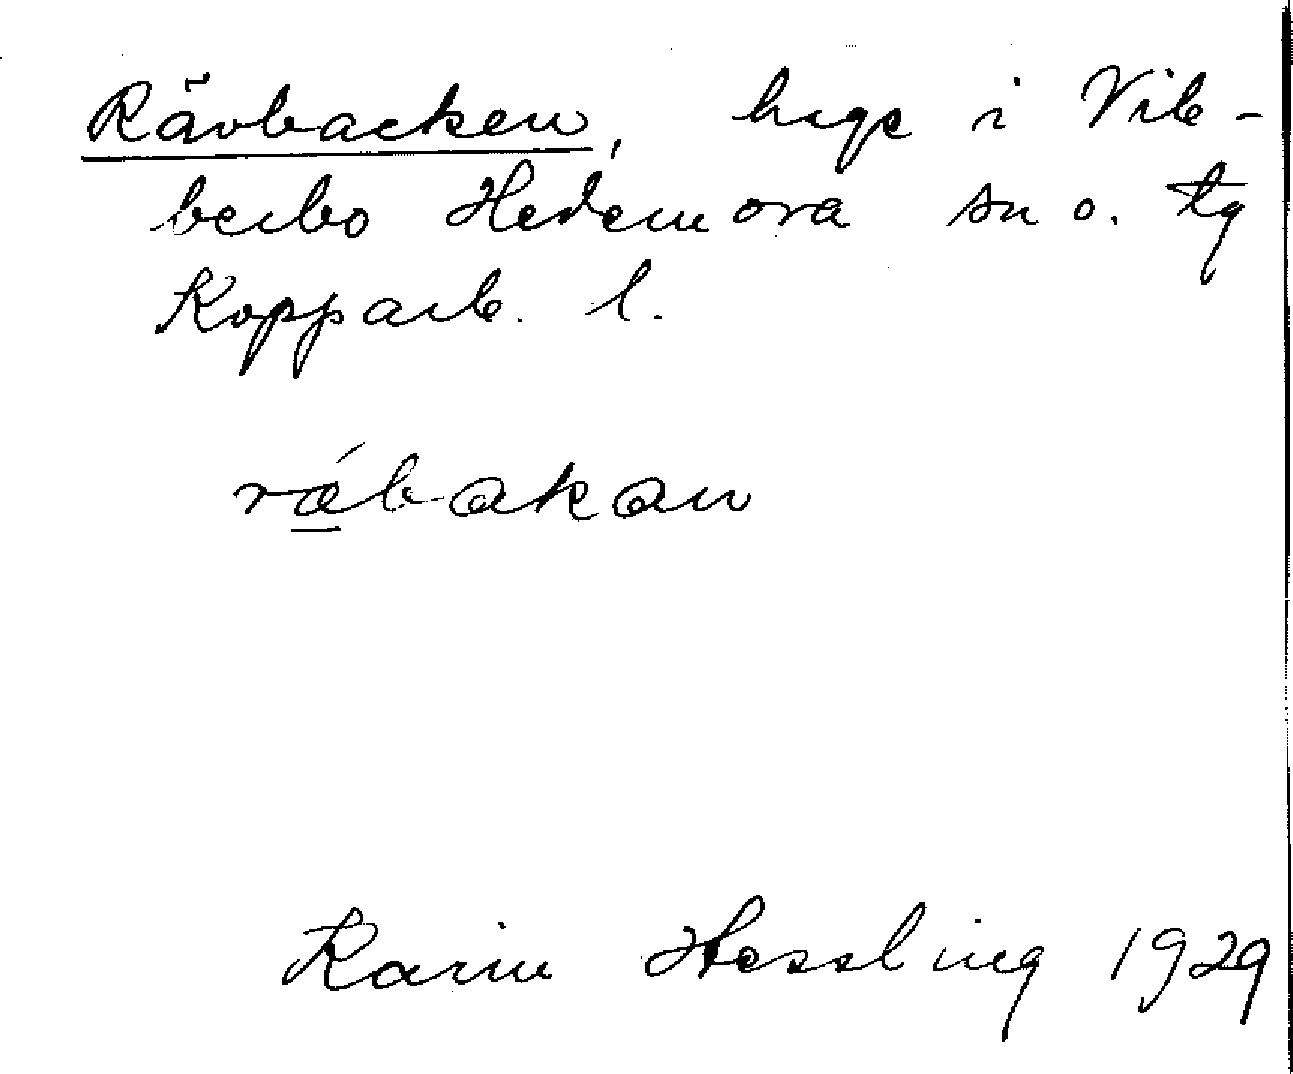 Rävbacken, hage i Vib-
berbo Hedemora sn o. tg
Kopparb. l.
rǽbakan
Karin Hessling 1929